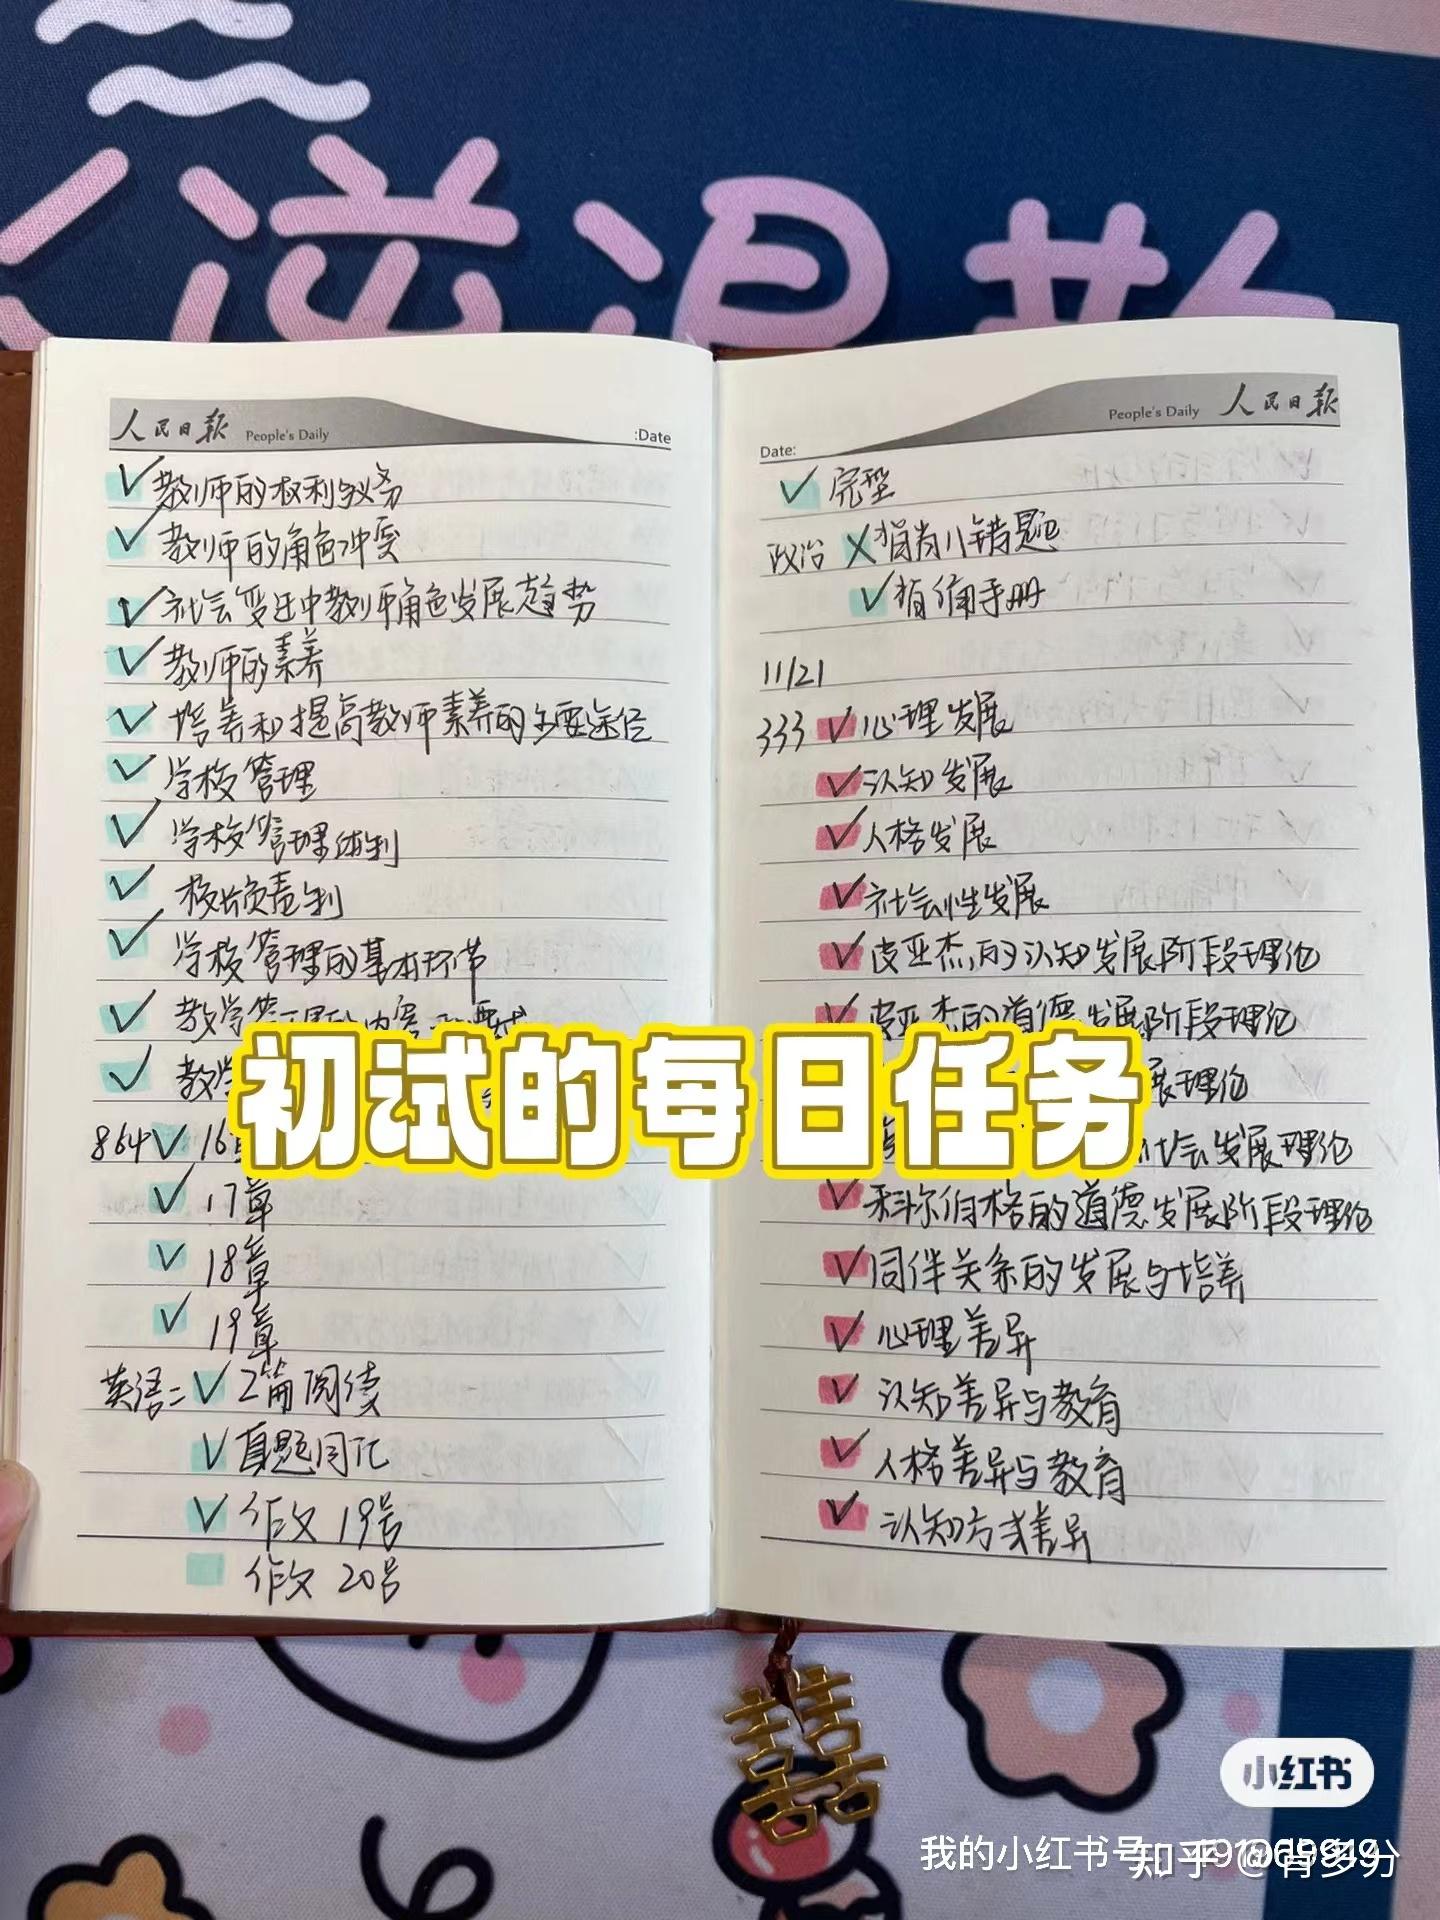 人民日报 People's Daily :Date
教师的权利与义务
教师的角色冲突
社会变迁中教师角色发展趋势
教师的素养
培养和提高教师素养的主要途径
学校管理
学校管理体制
校长负责制
学校管理的基本环节
教学管理的内容
教学
864 16
17章
18章
19章
英语二 2篇阅读
真题词汇
作文 19号
作文 20号
Date: People's Daily 人民日报
完型
政治 肖肖小错题
背诵手册
11/21
333 心理发展
认知发展
人格发展
社会性发展
皮亚杰的认知发展阶段理论
皮亚杰的道德发展阶段理论
展理论
社会发展理论
科尔伯格的道德发展阶段理论
同伴关系的发展与培养
心理差异
认知差异与教育
人格差异与教育
认知方式差异
初试的每日任务
小红书
我的小红书号
知乎